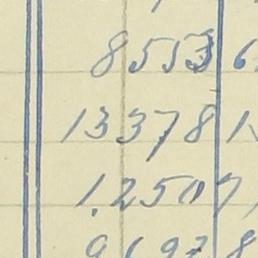 8553 6
13378 1
12507
9697 8